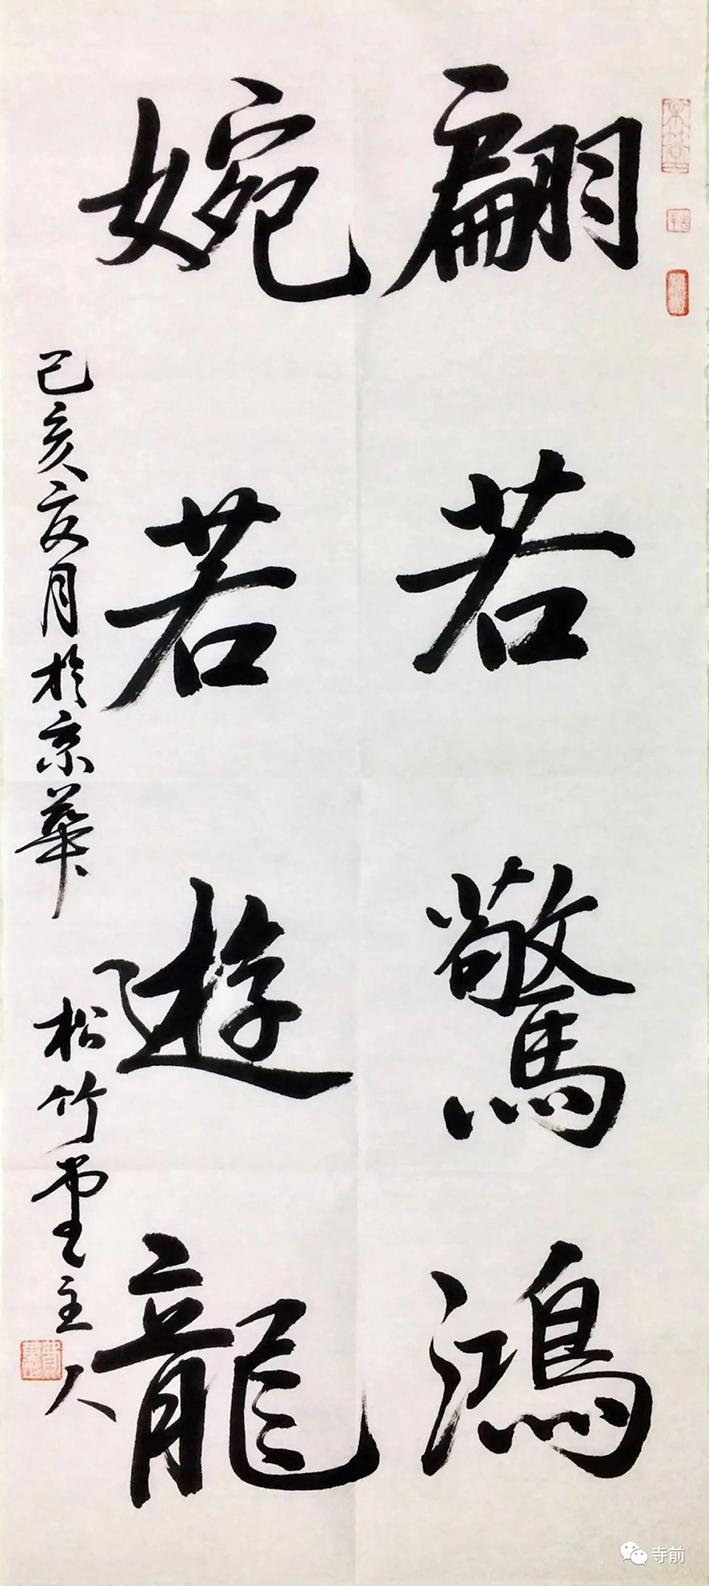 翩若驚鴻
婉若遊龍
己亥亥月於京華 松竹堂主人
寺前